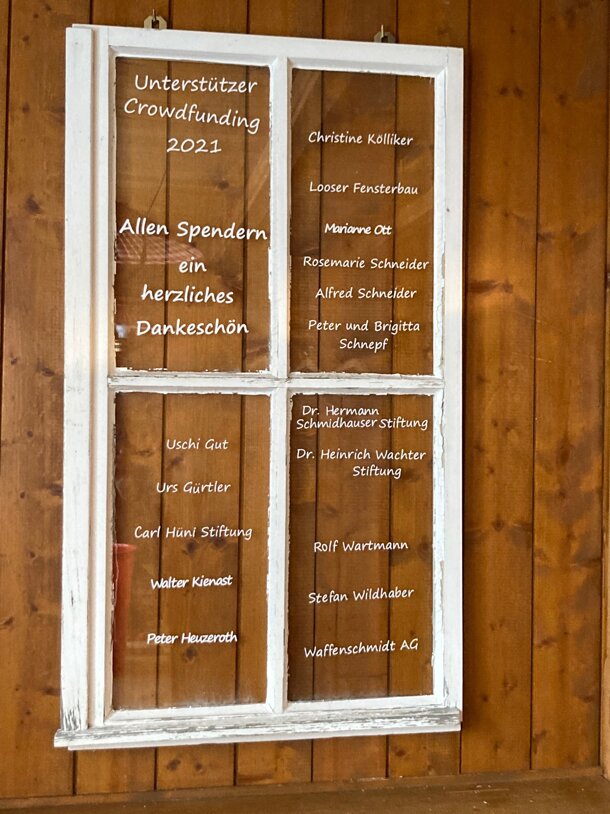 Unterstützer
Crowdfunding
2021
Allen Spendern
ein
herzliches
Dankeschön
Christine Kölliker
Looser Fensterbau
Marianne Ott
Rosemarie Schneider
Alfred Schneider
Peter und Brigitta
Schnepf
Uschi Gut
Urs Gürtler
Carl Hüni Stiftung
Walter Kienast
Peter Heuzeroth
Dr. Hermann
Schmidhauser Stiftung
Dr. Heinrich Wachter
Stiftung
Rolf Wartmann
Stefan Wildhaber
Waffenschmidt AG